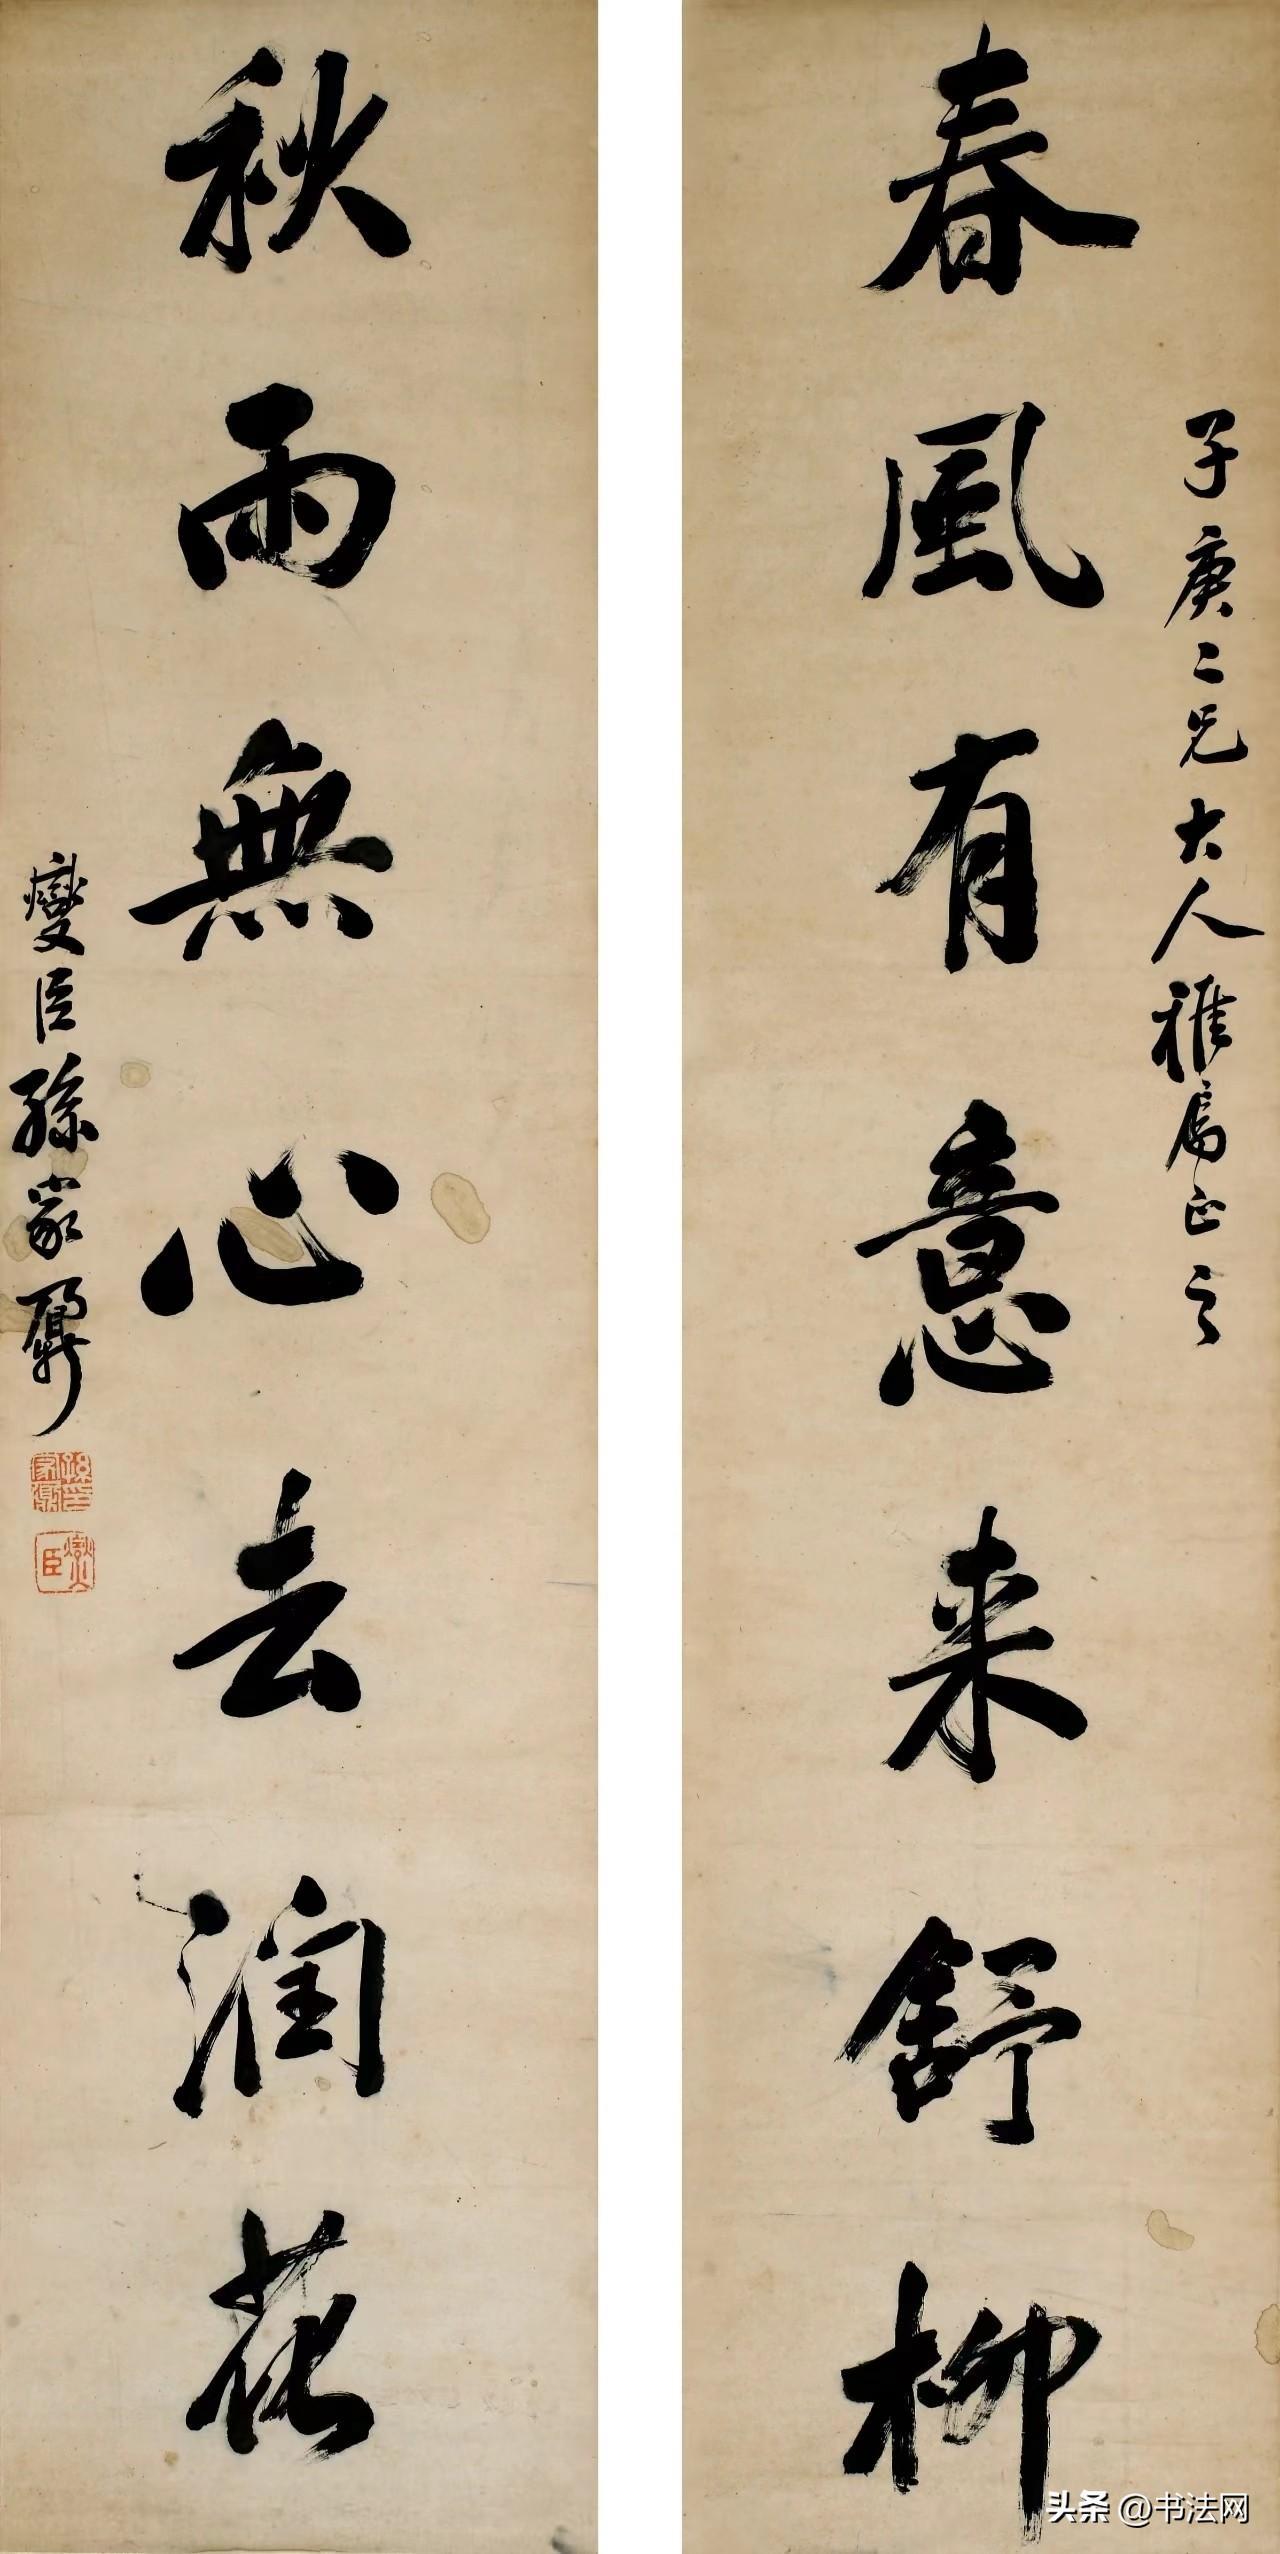 子庚二兄大人雅属正之
春風有意来舒柳
秋雨無心去润花
燮臣孫家鼐
孫家鼐印
燮臣
头条 @书法网